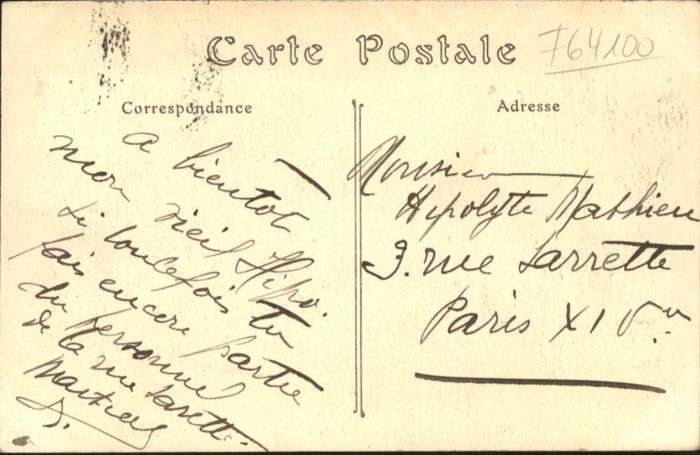 Carte Postale
764100
Correspondance
A bientot
mon vieil Hipo.
si toutefois tu
fais encore partie
du personnel
de la rue Sarrette.
Adresse
Monsieur
Hipolyte Mathieu
3. rue Sarrette
Paris XIV